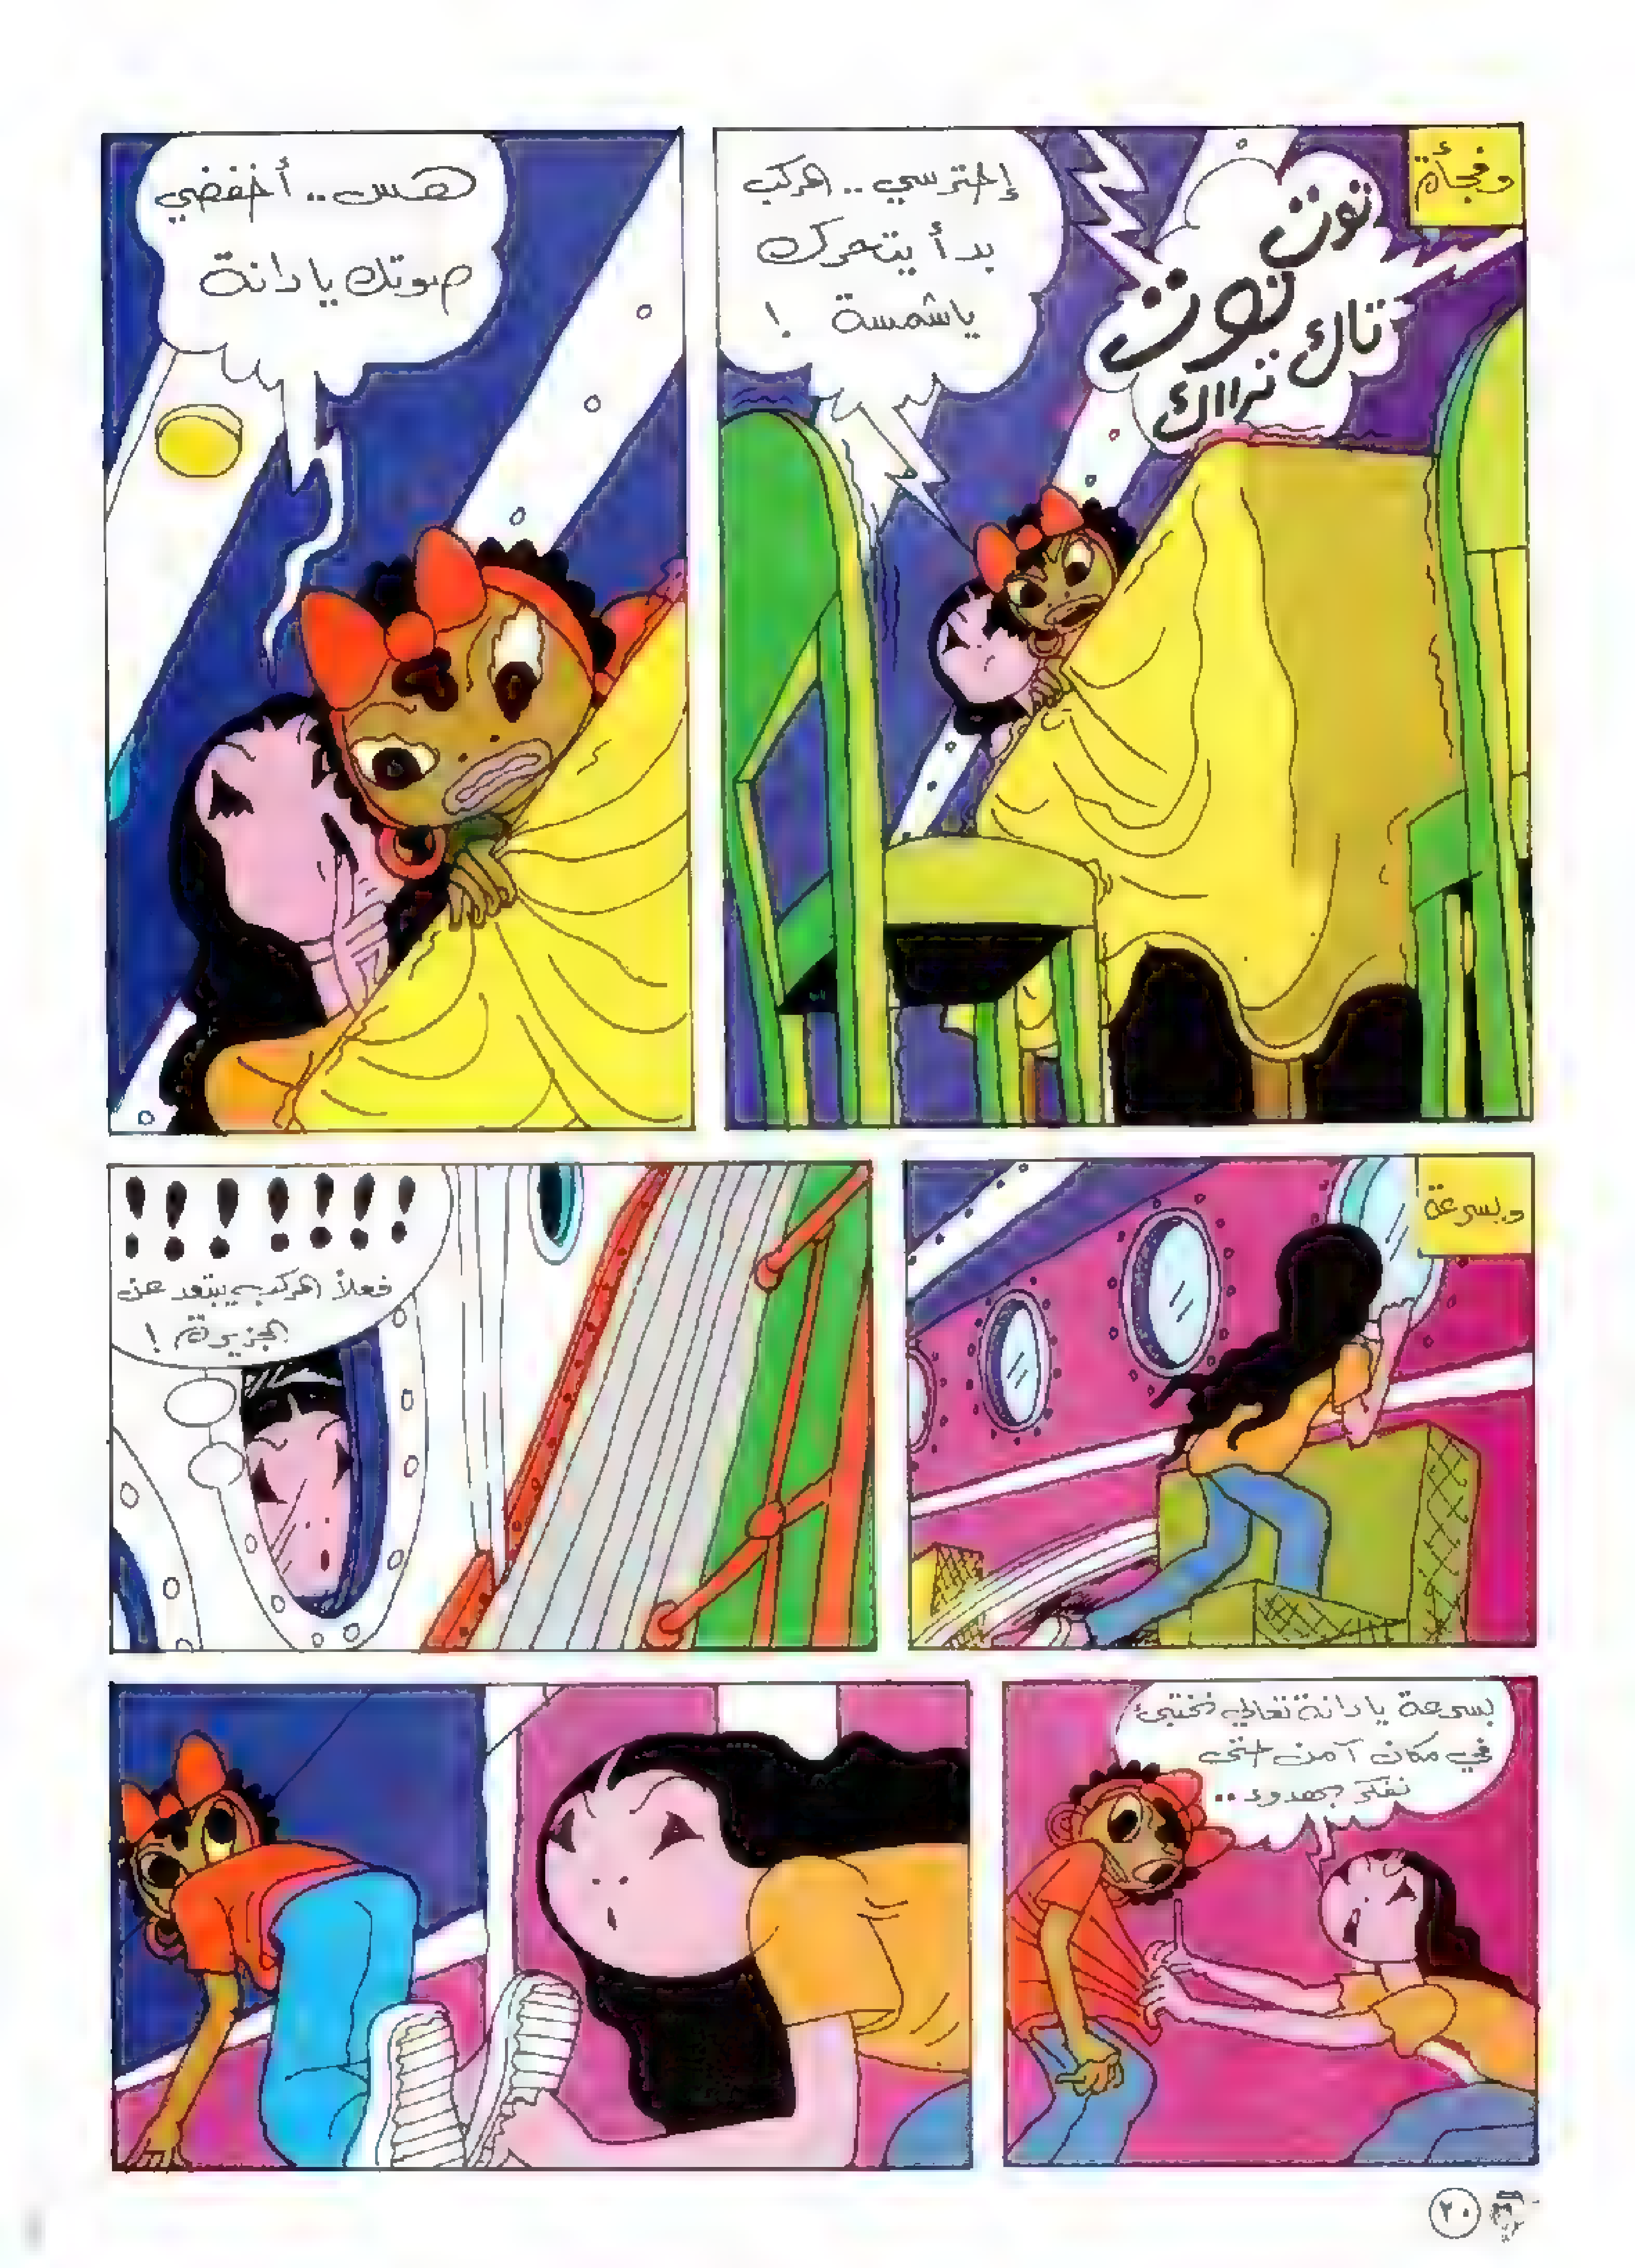 وفجأة
توت
توت
تاك
تراااك
إحترسي .. المركب
بدأ يتحرك
ياشمسة !
هس .. أخفضي
صوتك يا دانة
وبسرعة
! ! ! ! ! ! !
فعلاً المركب يبتعد عن
الجزيرة !
بسرعة يا دانة تعالي نختبئ
في مكان آمن حتى
نفكر بهدوء ..
٢٠